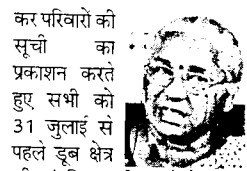 कर परिवारों की
सूची का
प्रकाशन करते
हुए सभी को
31 जुलाई से
पहले डूब क्षेत्र